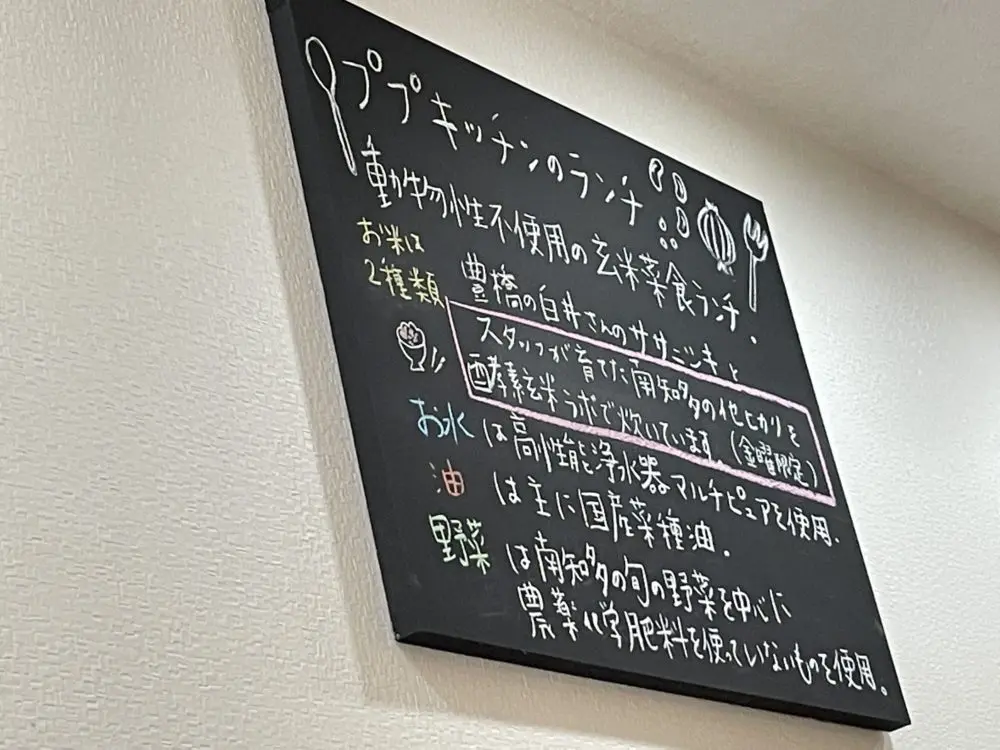 ププキッチンのランチ
動物性不使用の玄米菜食ランチ.
お米は
2種類
豊橋の白井さんのササニシキと
スタッフが育てた南知多のイセヒカリを
酵素玄米ラボで炊いています。(金曜限定)
お水は高性能浄水器マルチピュアを使用.
油は主に国産菜種油.
野菜は南知多の旬の野菜を中心に
農薬化学肥料を使っていないものを使用。